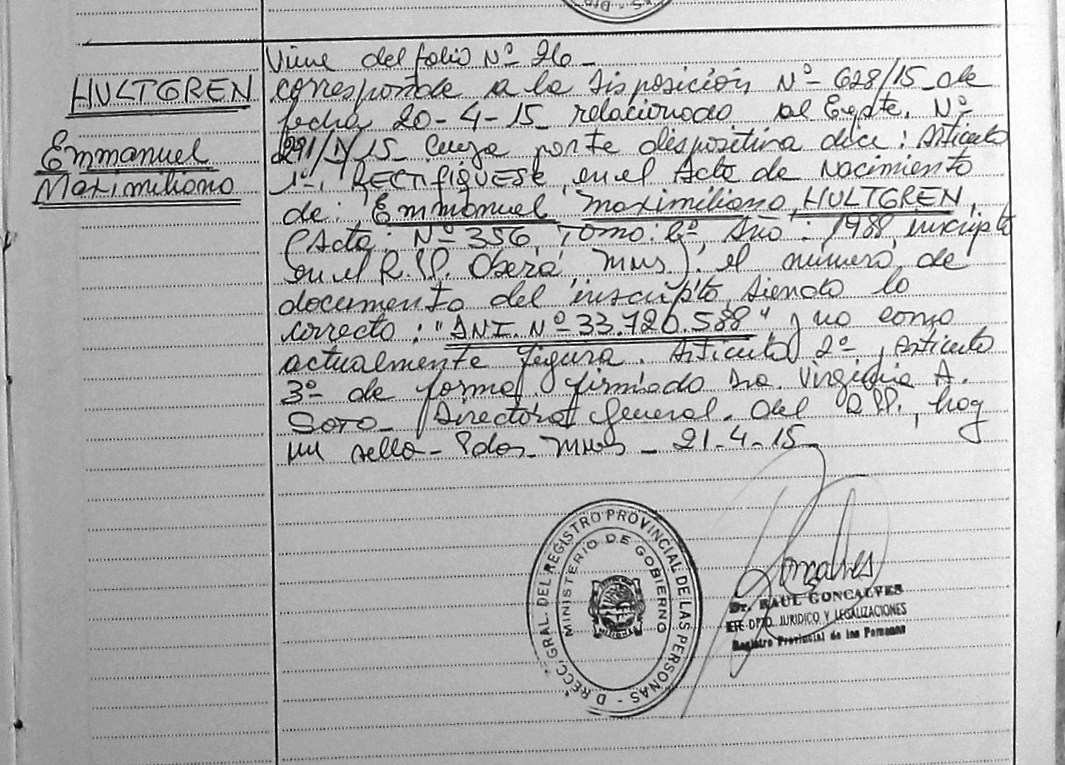 HULTGREN
Emmanuel
Maximiliano
Viene del folio Nº 26_
corresponde a la Disposición Nº 628/15_ de
fecha 20-4-15_ relacionado al Expte. Nº
291/D/15_ cuya parte dispositiva dice: Articulo
1º_ RECTIFIQUESE en el Acta de Nacimiento
de: Emmanuel Maximiliano HULTGREN,
(Acta: Nº 356, Tomo: 2º, Año: 1988, inscripto
en el R.P.P. Oberá Mnes): el número de
documento del inscripto, siendo lo
correcto: "D.N.I. Nº 33.720.588" y no como
actualmente figura. Articulo 2º, Articulo
3º de forma. firmado Dra. Virginia A.
SOTO_ Directora General. del R.P.P., hay
un sello_ Pdas_ Mnes_ 21-4-15_
DIRECC. GRAL. DEL REGISTRO PROVINCIAL DE LAS PERSONAS -
MINISTERIO DE GOBIERNO
Gonçalves
Dr. RAUL GONCALVES
JEFE DPTO. JURIDICO Y LEGALIZACIONES
Registro Provincial de las Personas